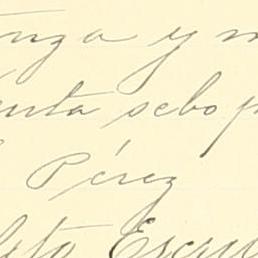 nza y m
enta sebo p
Pérez
leto Escri